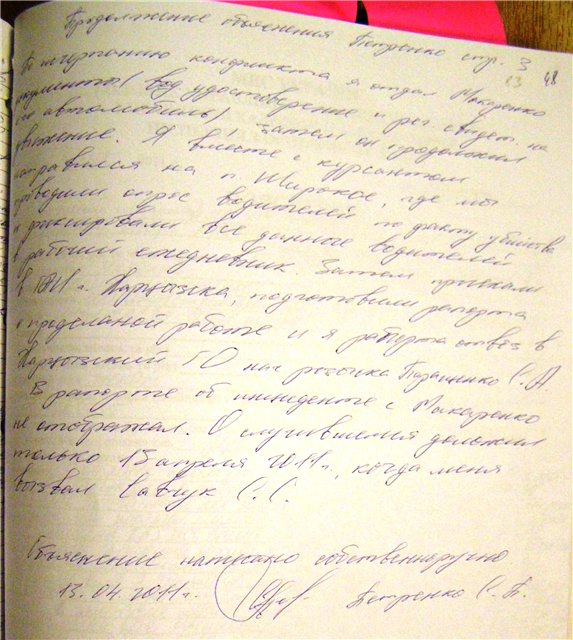 Продолжение объяснения Петренко стр. 3
13 48
По исчерпанию конфликта я отдал Макаренко
документы (вод. удостоверение и рег. свидет. на
его автомобиль), затем он продолжил
движение. Я вместе с курсантом
направился на п. Широкое, где мы
проводили опрос водителей по факту убийства
и фиксировали все данные водителей
в рабочий ежедневник. Затем приехали
в г. Харцызска, подготовили рапорта
о проделаной работе и я рапорта отвез в
Харцызский ГО нач розыска С. А.
В рапорте об инциденте с Макаренко
не отображал. О случившемся доложил
только 13 апреля 2011 г., когда меня
вызвал Савчук С. С.
Объяснение написано собственноручно
13.04.2011г. Петренко С. В.